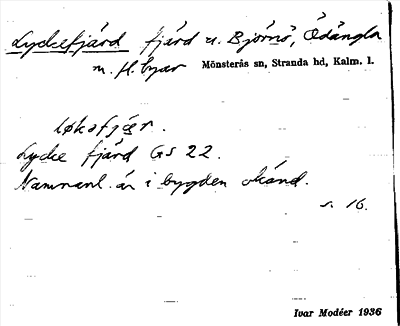 Lyckefjärd fjärd u. Björnö, Ödängla
m. fl. byar Mönsterås sn, Stranda hd, Kalm. l.
løkəfjær.
Lycke fjärd GS 22.
Namnanl. är i bygden okänd.
s. 16.
Ivar Modéer 1936